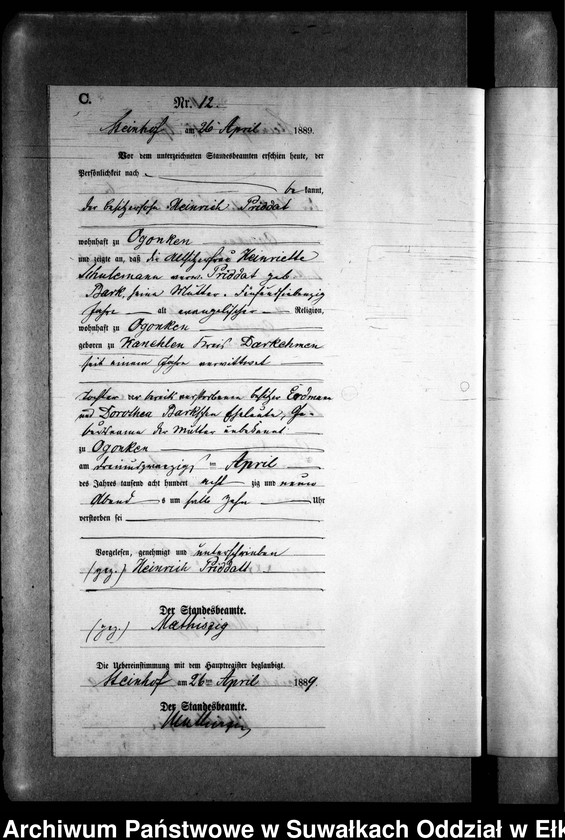 C.
Nr. 12.
Steinhof am 26 April 1889.
Vor dem unterzeichneten Standesbeamten erschien heute, der
Persönlichkeit nach
be kannt,
der Besitzersohn Heinrich Priddat
wohnhaft zu Ogonken
und zeigte an, daß die Altsitzerfrau Heinriette
Schulemann verw. Priddat geb.
Bark, seine Mutter, fünfundsiebenzig
Jahre alt evangelischer Religion,
wohnhaft zu Ogonken
geboren zu Kanehlen Kreis Darkehmen
seit einem Jahre verwittwet
Tochter der bereits verstorbenen Besitzer Erdman
und Dorothea Barkschen Eheleute, Ge-
burtsname der Mutter unbekannt
zu Ogonken
am dreiundzwanzigs ten April
des Jahres tausend acht hundert acht zig und neun
Abend s um halb zehn Uhr
verstorben sei
Vorgelesen, genehmigt und unterschrieben
(gez.) Heinrich Priddatt
Der Standesbeamte.
(gez.) Mathiszig
Die Uebereinstimmung mit dem Hauptregister beglaubigt.
Steinhof am 26ten April 1889.
Der Standesbeamte.
Archiwum Państwowe w Suwałkach Oddział w Ełk